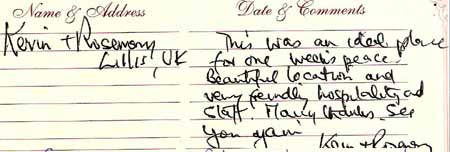 Name & Address
Date & Comments
Kevin + Rosemary
Lillis, UK
This was an ideal place
for one week's peace.
Beautiful location and
very friendly hospitality and
staff. Many thanks. See
you again
Kevin + Rosemary